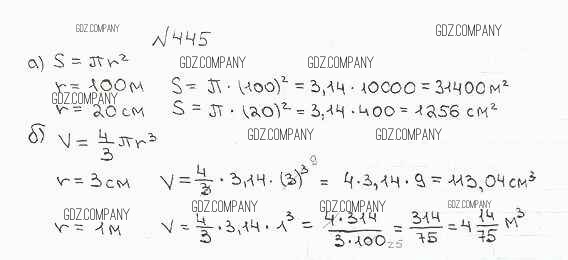 GDZ.COMPANY
№445
GDZ.COMPANY
а) S = πr²
GDZ.COMPANY GDZ.COMPANY
r = 100 м S = π · (100)² = 3,14 · 10000 = 31400 м²
GDZ.COMPANY
r = 20 см S = π · (20)² = 3,14 · 400 = 1256 см²
б) V = 4/3 πr³
GDZ.COMPANY GDZ.COMPANY
r = 3 см V = 4/3 · 3,14 · (3)³ 9 = 4 · 3,14 · 9 = 113,04 см³
GDZ.COMPANY GDZ.COMPANY GDZ.COMPANY GDZ.COMPANY
r = 1 м V = 4/3 · 3,14 · 1³ = 4 · 314/3 · 100 25 = 314/75 = 4 14/75 м³